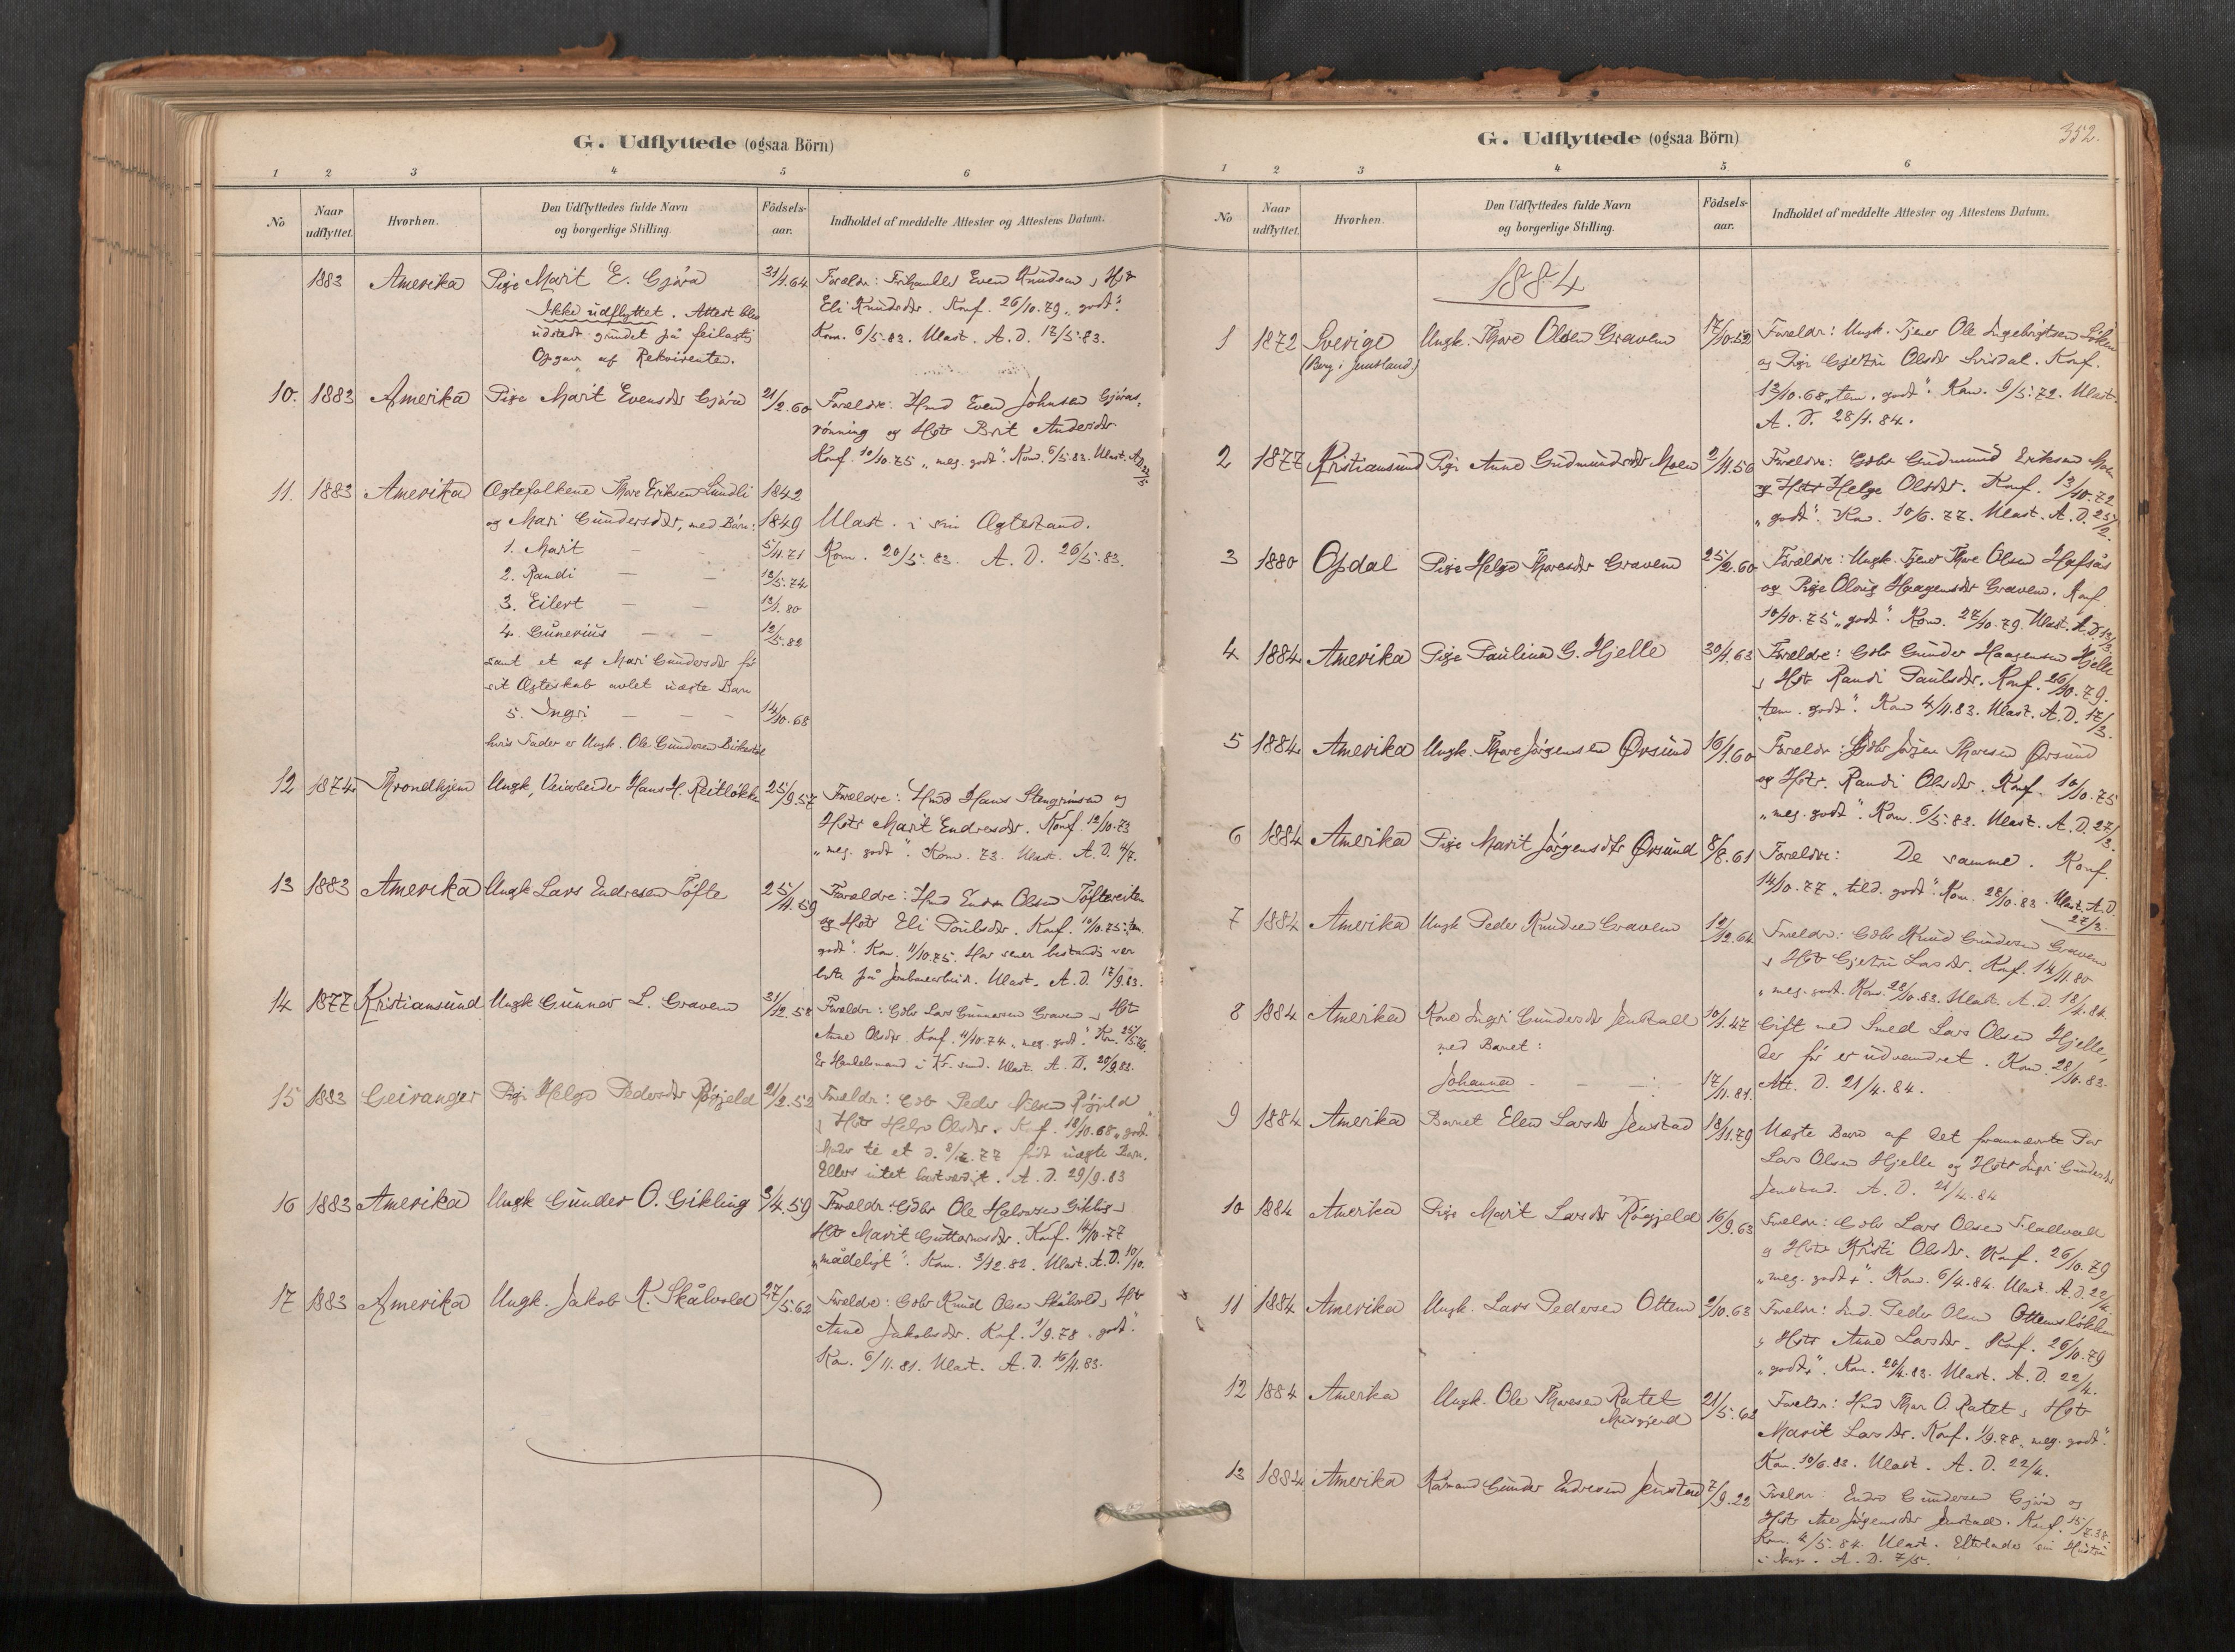 G. Udflyttede (ogsaa Börn)
1 2 3 4 5 6
No Naar udflyttet. Hvorhen. Den Udflyttedes fulde Navn og borgerlige Stilling. Födsels-aar. Indholdet af meddelte Attester og Attestens Datum.
1883 Amerika Pige Marit E. Gjöra 31/1.64 Forældre: Even Knudsen
Ikke udflyttet. Attest blev Eli Knudsdtr. Konf. 26/10.79 „godt".
udstedt grundet på feilagtig Kom. 6/5.83. Ulast. A. D. 12/5.83.
Opgave af Rekvirenten.
10. 1883 Amerika Pige Marit Evensdtr Gjöra 21/2.60 Forældre: Hmd Even Johnsen Gjöras-
rönning og Hstr Brit Andersdtr.
Konf. 10/10.75 „meg. godt". Kom. 6/5.83. Ulast. A. D.
11. 1883 Amerika Ægtefolkene Thore Eriksen Lundli 1842
og Mari Gundersdtr, med Börn: 1849 Ulast. i sin Ægtestand.
1. Marit — — 5/11.71 Kom. 20/5.83. A. D. 26/5.83.
2. Randi — — 13/5.74
3. Eilert — — 13/1.80
4. Gunerius — — 12/5.82
samt et af Mari Gundersdtr för
sit Ægteskab avlet uægte Barn
5. Ingri — — — 14/10.68
hvis Fader er Ungk. Ole Gundersen
12 1874 Throndhjem Ungk, Veiarbeider Hans H. Reitlökken 25/9.57 Forældre: Hmd Hans Stengrimsen og
Hstr Marit Endresdtr. Konf. 12/10.73
„meg. godt". Kom. 73. Ulast. A. D. 4/7.
13 1883 Amerika Ungk Lars Endresen Töfte 25/11.59 Forældre: Hmd Endre Olsen Töftereiten
og Hstr Eli Poulsdtr. Konf. 10/10.75 „tem.
godt". Kom. 11/10.75. Har senere bestandig været
borte på Jernbanearbeide. Ulast. A. D. 17/9.83.
14 1877 Kristiansund Ungk Gunnar L. Gravem 31/12.58 Forældre: Gdbr Lars Gunnarsen Gravem og Hstr
Anne Olsdtr. Konf. 11/10.74 „meg. godt". Kom. 25/5.76.
Er Handelsmand i Kr.sund. Ulast. A. D. 20/9.83.
15 1883 Geiranger Pige Helge Pedersdtr Rögjeld 21/2.52 Forældre: Gdbr Peder Rögjeld
og Hstr Helge Olsdtr. Konf. 18/10.68 „godt".
Moder til et d. 77 födt uægte Barn.
Ellers intet lastværdigt. A. D. 29/9.83
16 1883 Amerika Ungk Gunder O. Gikling 3/4.59 Forældre: Gdbr Ole Halvorsen Gikling og
Hstr Marit Guttormsdtr. Konf. 14/10.77
„mådeligt". Kom. 3/12.82. Ulast. A. D. 10/10.
17 1883 Amerika Ungk. Jakob K. Skålvold 27/5.62 Forældre: Gdbr Knud Olsen Skålvold og Hstr
Anne Jakobsdtr. Konf. 1/9.78 „godt".
Kom. 6/11.81. Ulast. A. D. 16/11.83.
352.
G. Udflyttede (ogsaa Börn)
1 2 3 4 5 6
No Naar udflyttet. Hvorhen. Den Udflyttedes fulde Navn og borgerlige Stilling. Födsels-aar. Indholdet af meddelte Attester og Attestens Datum.
1884
1 1872 Sverige Ungk. Thore Olsen Gravem 17/10.52 Forældre: Ungk. Tjener Ole Ingebrigtsen Löken
(Berg i Jemtland) og Pige Gjertru Olsdtr Konf.
13/10.68 „tem. godt". Kom. 9/5.72. Ulast.
A. D. 28/1.84.
2 1877 Kristiansund Pige Anne Gudmundsdtr Moen 2/11.56 Forældre: Gdbr Gudmund Eriksen Moen
og Hstr Helge Olsdtr. Konf. 13/10.72
„godt". Kom. 10/6.77. Ulast. A. D. 25/2.
3 1880 Opdal Pige Helge Thoresdtr Gravem 25/2.60 Forældre: Ungk. Tjener Thore Olsen Hafsås
og Pige Oloug Haagensdtr Gravem. Konf.
10/10.75 „godt". Kom. 27/10.79. Ulast. A. D. 13/3.
4 1884 Amerika Pige Pauline G. Hjelle 30/1.63 Forældre: Gdbr Gunder Haagensen Hjelle
og Hstr Randi Paulsdtr. Konf. 26/10.79.
„tem. godt". Kom 4/11.83. Ulast. A. D. 17/3.
5 1884 Amerika Ungk. Thore Jörgensen Ørsund 16/1.60 Forældre: Gdbr Jörgen Thoresen Ørsund
og Hstr. Randi Olsdtr. Konf. 10/10.75
„meg. godt". Kom. 6/5.83. Ulast. A. D. 27/3.
6 1884 Amerika Pige Marit Jörgensdtr Ørsund 8/8.61 Forældre: De samme. Konf.
14/10.77 „tild. godt". Kom. 28/10.83. Ulast. A. D.
27/3.
7 1884 Amerika Ungk Peder Knudsen Gravem 12/12.64 Forældre: Gdbr Knud Gundersen Gravem
og Hstr Gjertru Larsdtr. Konf. 14/11.80
„meg. godt. Kom. 28/10.83. Ulast. A. D. 18/4.84.
8 1884 Amerika Kone Ingri Gundersdtr Jenstad 10/1.47 Gift med Smed Lars Olsen Hjelle,
med Barnet: der för er udvandret. Kom 28/10.83.
Johanne — — 17/11.81. Att. D. 21/4.84.
9 1884 Amerika Barnet Elen Larsdtr Jenstad 18/11.79 Uægte Barn af det förnævnte Par
Lars Olsen Hjelle og Hstr Ingri Gundersdtr
Jenstad. A. D. 21/4.84
10 1884 Amerika Pige Marit Larsdtr Rögjeld 16/9.63 Forældre: Gdbr Lars Olsen
og Hstr Kristi Olsdtr. Konf. 26/10.79
„meg. godt+". Kom. 6/4.84. Ulast. A. D. 22/4.
11 1884 Amerika Ungk. Lars Pedersen Ottem 2/10.63 Forældre: Ind. Peder Olsen Ottemslökken
og Hstr Anne Larsdtr. Konf. 26/10.79
„godt+". Kom. 20/4.83. Ulast. A. D. 22/4.
12 1884 Amerika Ungk. Ole Thoresen Ratet 21/5.62 Forældre: Hmd Thore O. Ratet og Hstr
Musgjerd Marit Larsdtr. Konf. 1/9.78 „meg. godt".
Kom. 10/6.83. Ulast. A. D. 22/4.
13 1884 Amerika Kårmand Gunder Endresen Jenstad 7/9.22 Forældre: Endre Gundersen Gjöra og
Hstr Ane Jörgensdtr Jenstad. Konf. 15/7.38.
Kom. 4/5.84. Ulast. Efterlader sin Hustru
i Norge. A. D. 7/5.